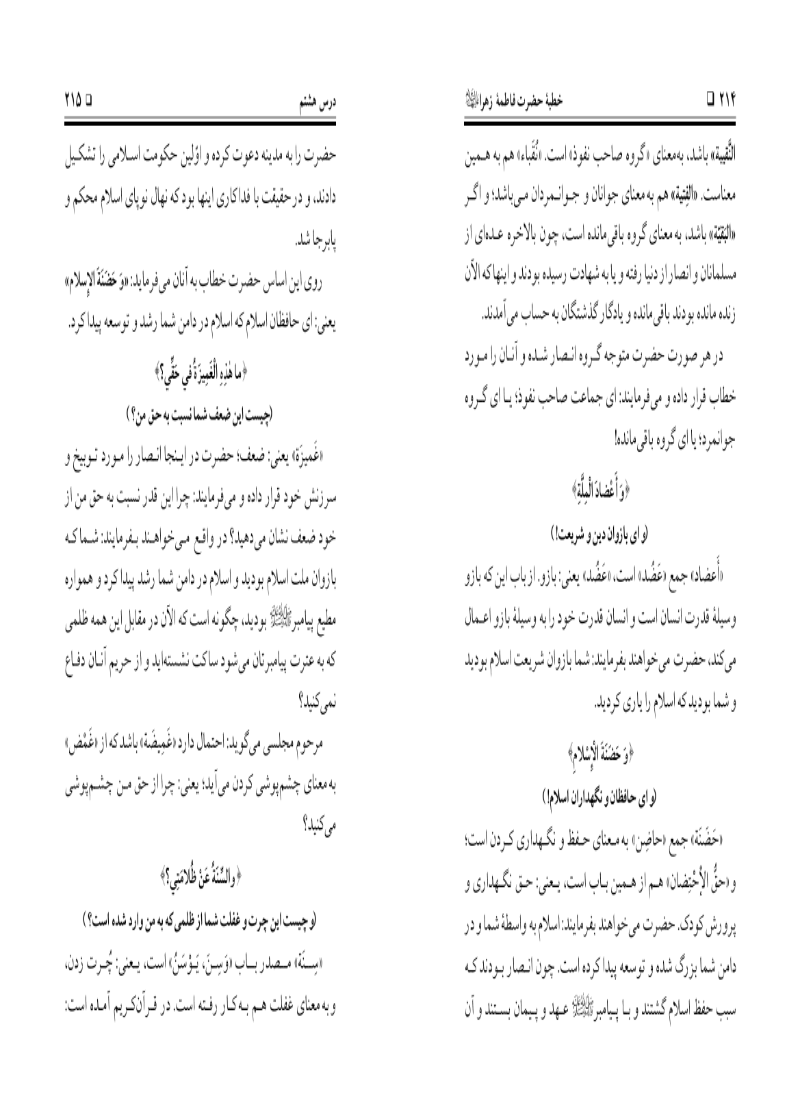 ۲۱۴ □ خطبهٔ حضرت فاطمهٔ زهرا
النَّقیبة» باشد، به‌معنای «گروه صاحب نفوذ» است. «نُقَباء» هم به همین
معناست. «الفِتیة» هم به معنای جوانان و جوانمردان می‌باشد؛ و اگر
«البَقیّة» باشد، به معنای گروه باقی‌مانده است، چون بالاخره عده‌ای از
مسلمانان و انصار از دنیا رفته و یا به شهادت رسیده بودند و اینها که الآن
زنده مانده بودند باقی‌مانده و یادگار گذشتگان به حساب می‌آمدند.
در هر صورت حضرت متوجه گروه انصار شده و آنان را مورد
خطاب قرار داده و می‌فرمایند: ای جماعت صاحب نفوذ؛ یا ای گروه
جوانمرد؛ یا ای گروه باقی‌مانده!
﴿وَ أَعْضادَ الْمِلَّةِ﴾
(و ای بازوان دین و شریعت!)
«أَعضاد» جمع «عَضُد» است، «عَضُد» یعنی: بازو. از باب این که بازو
وسیلهٔ قدرت انسان است و انسان قدرت خود را به وسیلهٔ بازو اعمال
می‌کند، حضرت می‌خواهند بفرمایند: شما بازوان شریعت اسلام بودید
و شما بودید که اسلام را یاری کردید.
﴿وَ حَضَنَةَ الْإِسْلامِ﴾
(و ای حافظان و نگهداران اسلام!)
«حَضَنَة» جمع «حاضِن» به معنای حفظ و نگهداری کردن است؛
و «حقُّ الإحْتِضان» هم از همین باب است، یعنی: حق نگهداری و
پرورش کودک. حضرت می‌خواهند بفرمایند: اسلام به واسطهٔ شما و در
دامن شما بزرگ شده و توسعه پیدا کرده است. چون انصار بودند که
سبب حفظ اسلام گشتند و با پیامبرﷺ عهد و پیمان بستند و آن
درس هشتم □ ۲۱۵
حضرت را به مدینه دعوت کرده و اوّلین حکومت اسلامی را تشکیل
دادند، و در حقیقت با فداکاری اینها بود که نهال نوپای اسلام محکم و
پابرجا شد.
روی این اساس حضرت خطاب به آنان می‌فرماید: «وَ حَضَنَةَ الإسلام»
یعنی: ای حافظان اسلام که اسلام در دامن شما رشد و توسعه پیدا کرد.
﴿ما هٰذِهِ الْغَمِيزَةُ في حَقِّي؟﴾
(چیست این ضعف شما نسبت به حق من؟)
«غَمیزَة» یعنی: ضعف؛ حضرت در اینجا انصار را مورد توبیخ و
سرزنش خود قرار داده و می‌فرمایند: چرا این قدر نسبت به حق من از
خود ضعف نشان می‌دهید؟ در واقع می‌خواهند بفرمایند: شما که
بازوان ملت اسلام بودید و اسلام در دامن شما رشد پیدا کرد و همواره
مطیع پیامبرﷺ بودید، چگونه است که الآن در مقابل این همه ظلمی
که به عترت پیامبرتان می‌شود ساکت نشسته‌اید و از حریم آنان دفاع
نمی‌کنید؟
مرحوم مجلسی می‌گوید: احتمال دارد «غَمیضَة» باشد که از «غَمْض»
به معنای چشم‌پوشی کردن می‌آید؛ یعنی: چرا از حق من چشم‌پوشی
می‌کنید؟
﴿والسِّنَةُ عَنْ ظُلامَتي؟﴾
(و چیست این چرت و غفلت شما از ظلمی که به من وارد شده است؟)
«سِنَة» مصدر باب «وَسِنَ، یَوْسَنُ» است، یعنی: چُرت زدن،
و به معنای غفلت هم به کار رفته است. در قرآن‌کریم آمده است: